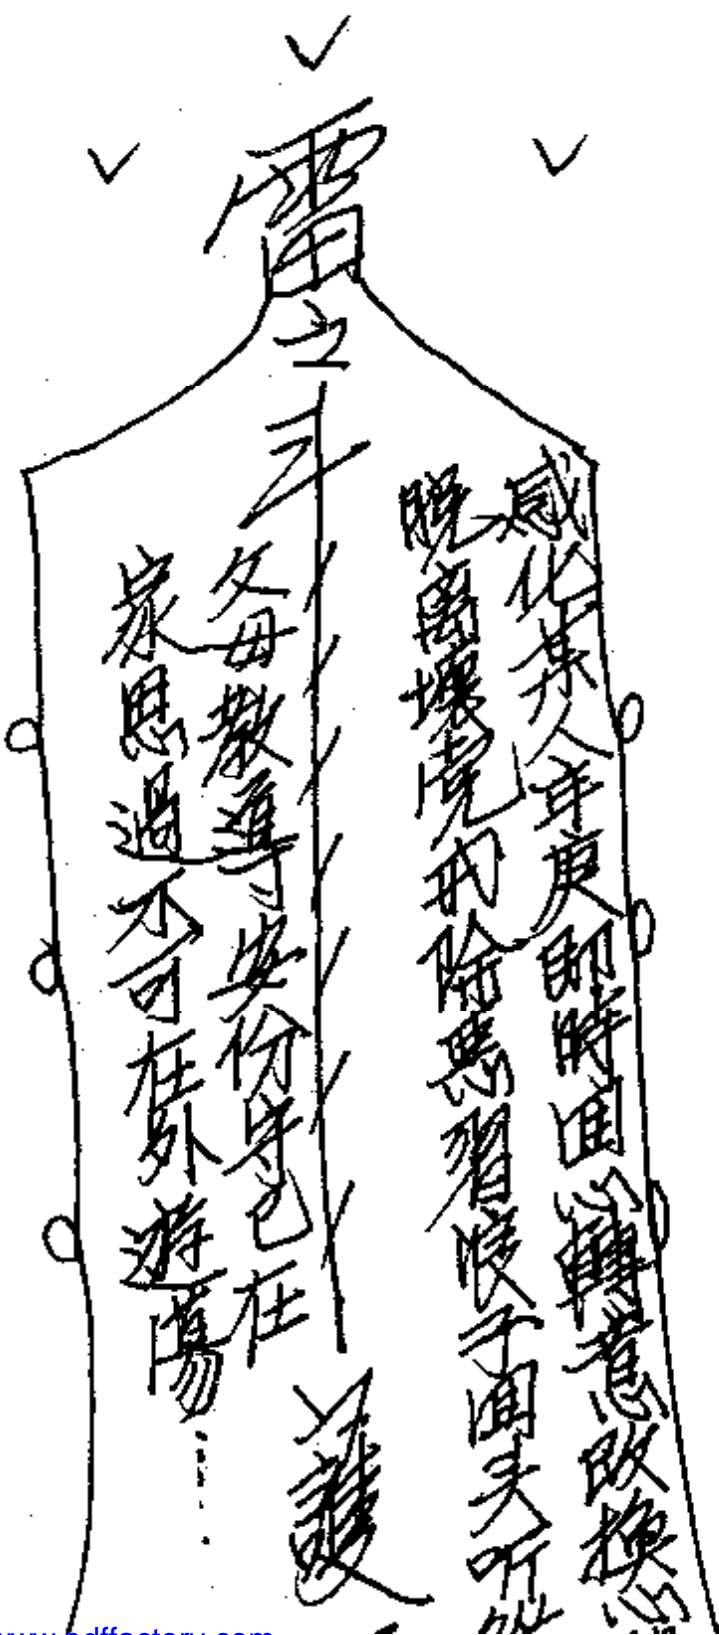 雷
感化某人年庚即時囬心轉意改換心
脱離壞
戒除惡習浪子囬头听從
父母教導安份守己在
家思過不可在外遊蕩……
護